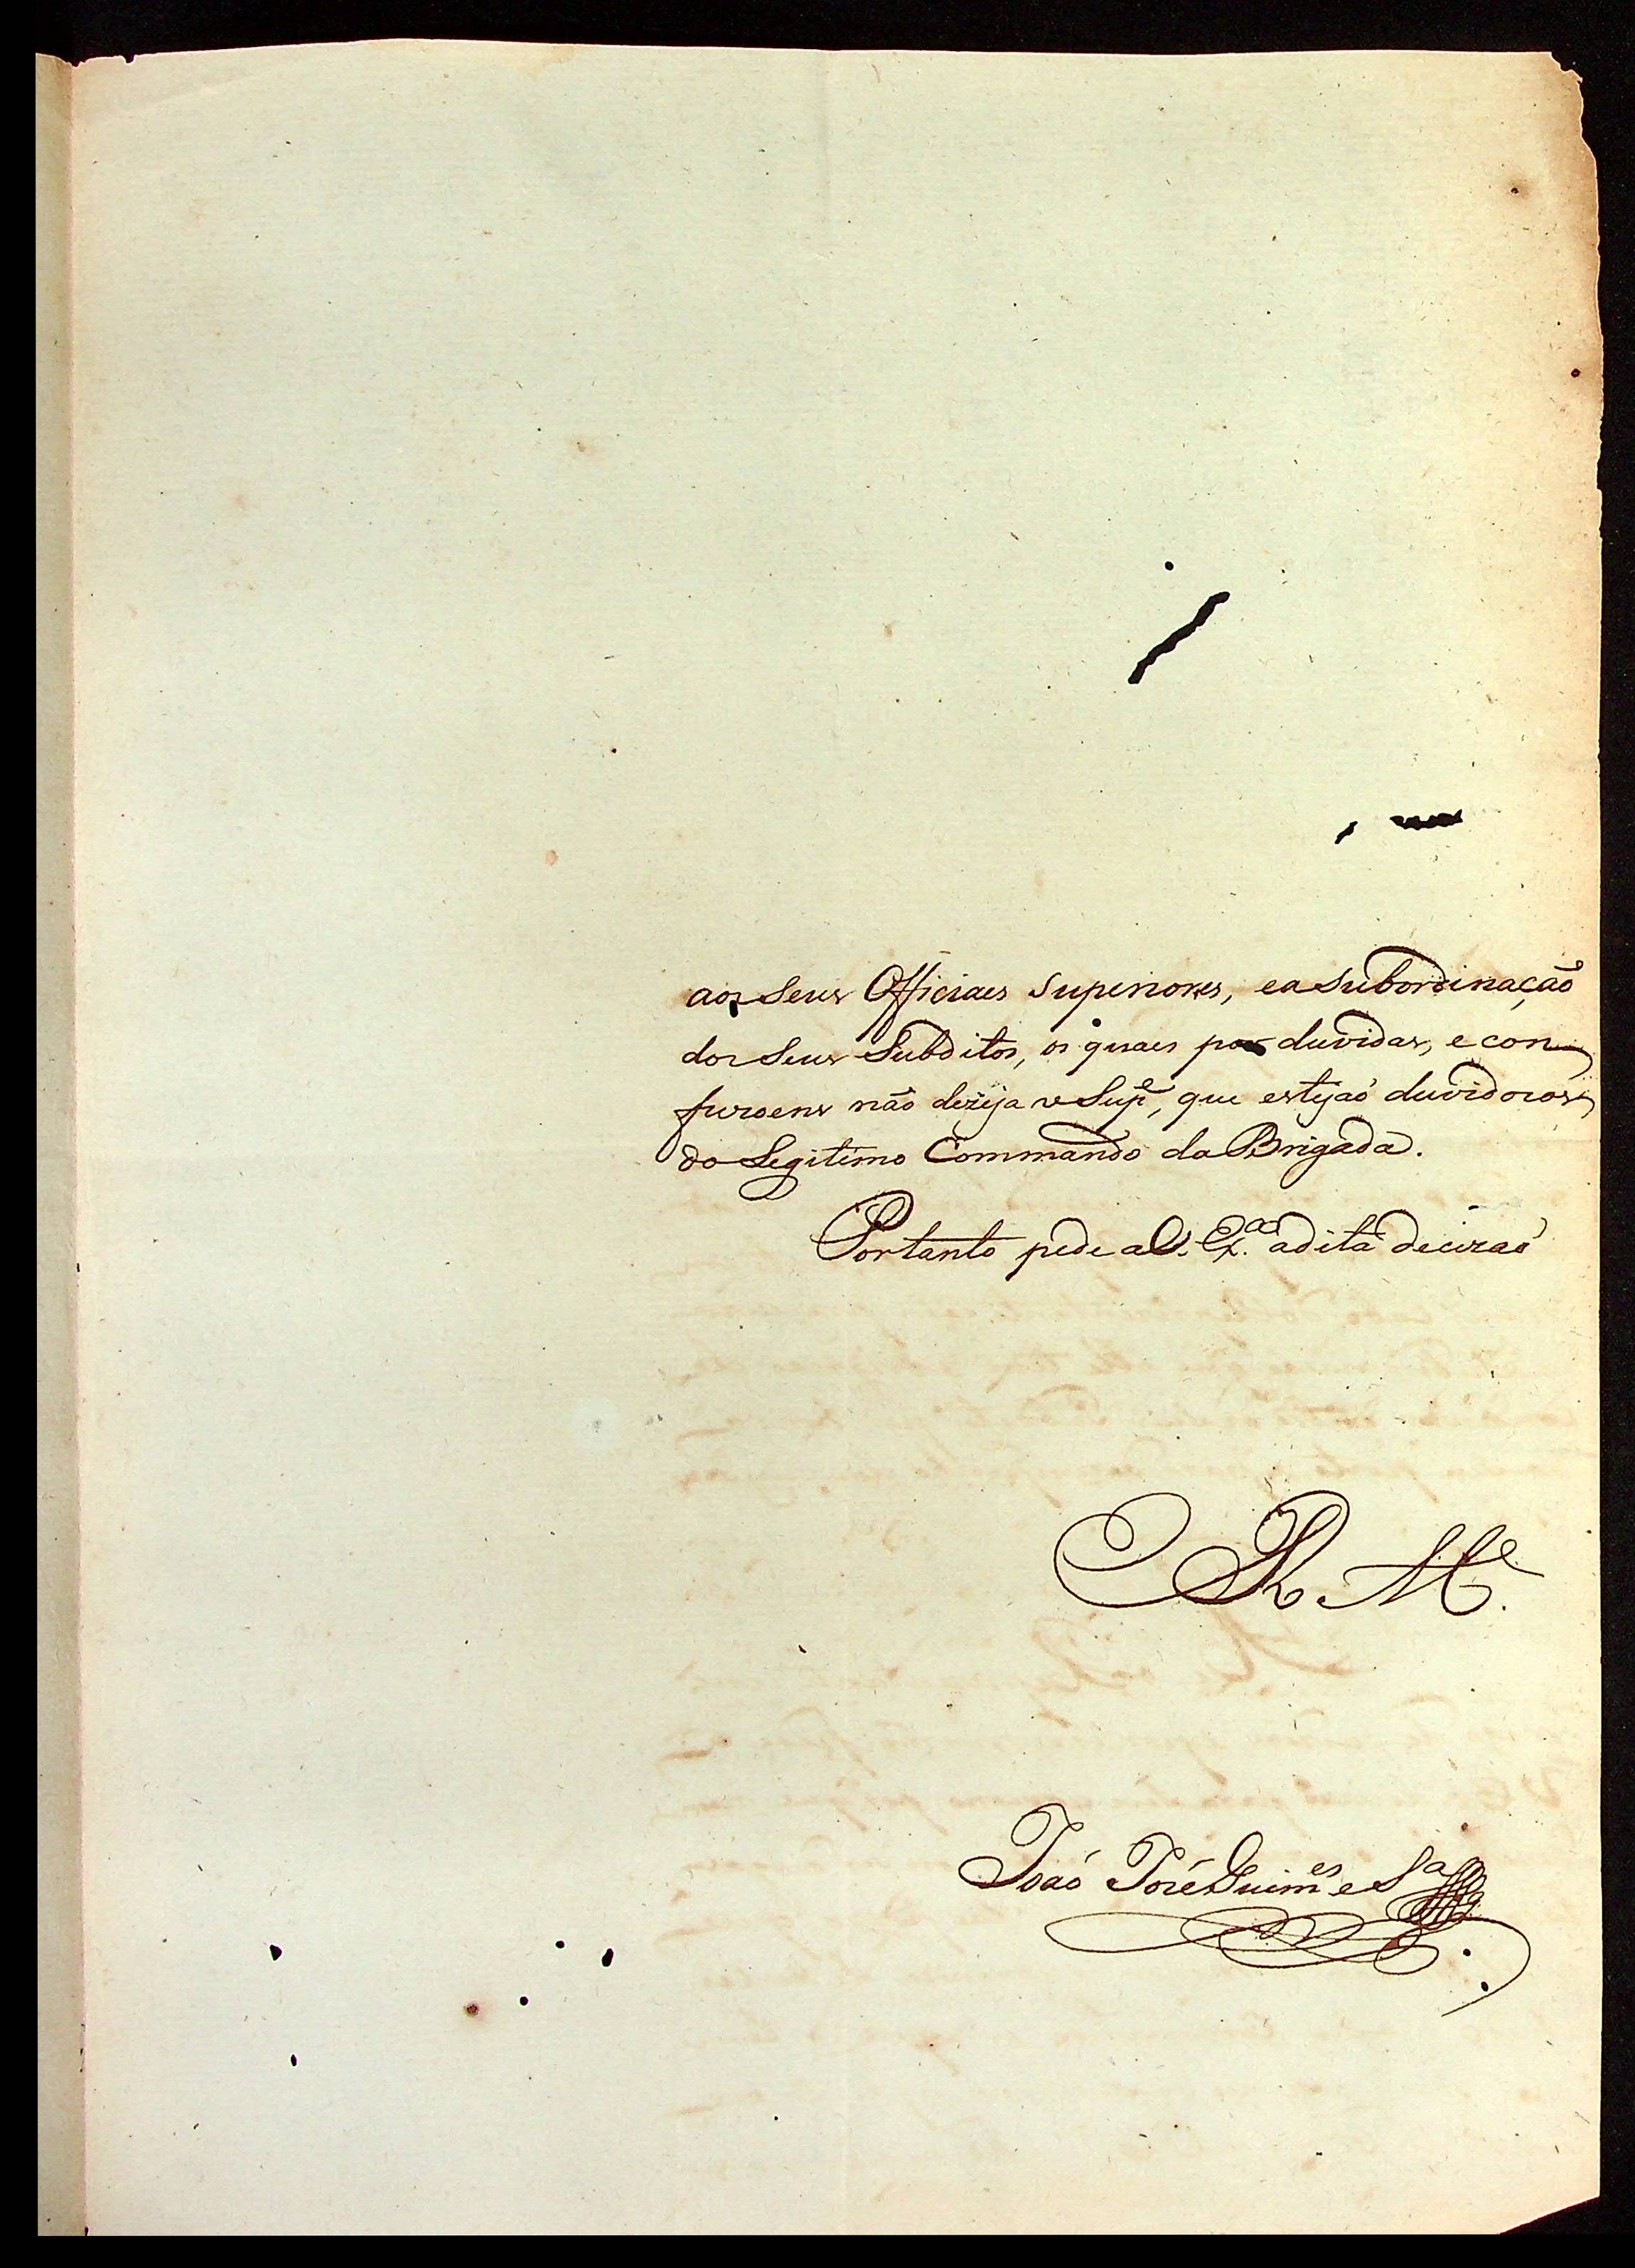 aos Seus Officiaes Superiores, ea Subordinação
dos Seus Subditos, os quaes por duvidas, e con-
fusoens não dezeja o Supe, que estejaõ duvidosos,
do Legitimo Commando da Brigada.
Portanto pede a V. Exas. adita decizaõ
E R. Me.
Joaõ José Guimes e Sa